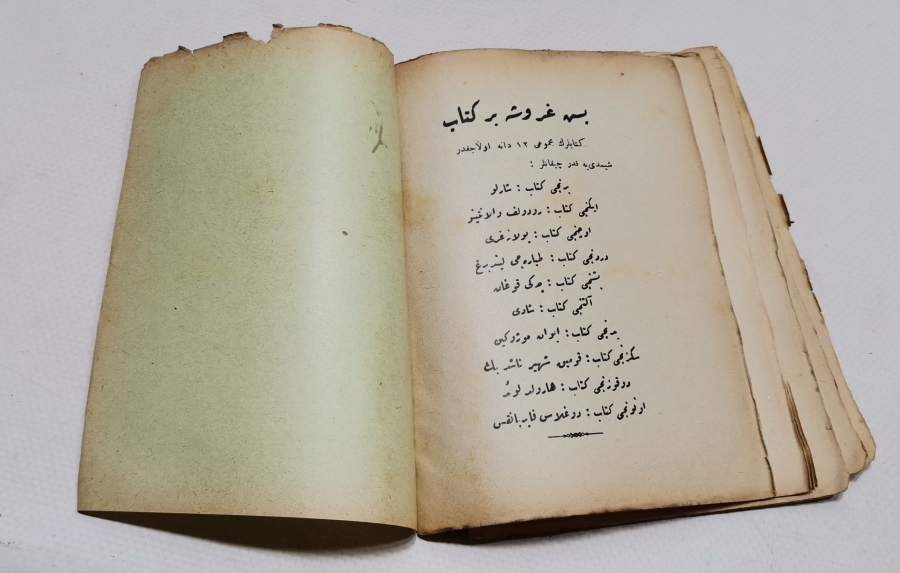 بش غروشه بر كتاب
كتابلرك عمومی ١٢ دانه اولاجقدر
شیمدی‌یه قدر چیقانلر :
برنجی كتاب : شارلو
ایكنجی كتاب : رودولف والانتینو
اوچنجی كتاب : پولانه‌غری
دردنجی كتاب : طیاره‌جی لیندبرغ
بشنجی كتاب : جه‌كی قوغان
آلتنجی كتاب : شاری
یدنجی كتاب : ایوان موژوكین
سكزنجی كتاب : قومیق شهیر ناشد بك
دوقوزنجی كتاب : هارولد لوید
اوننجی كتاب : دوغلاس فایربانقس